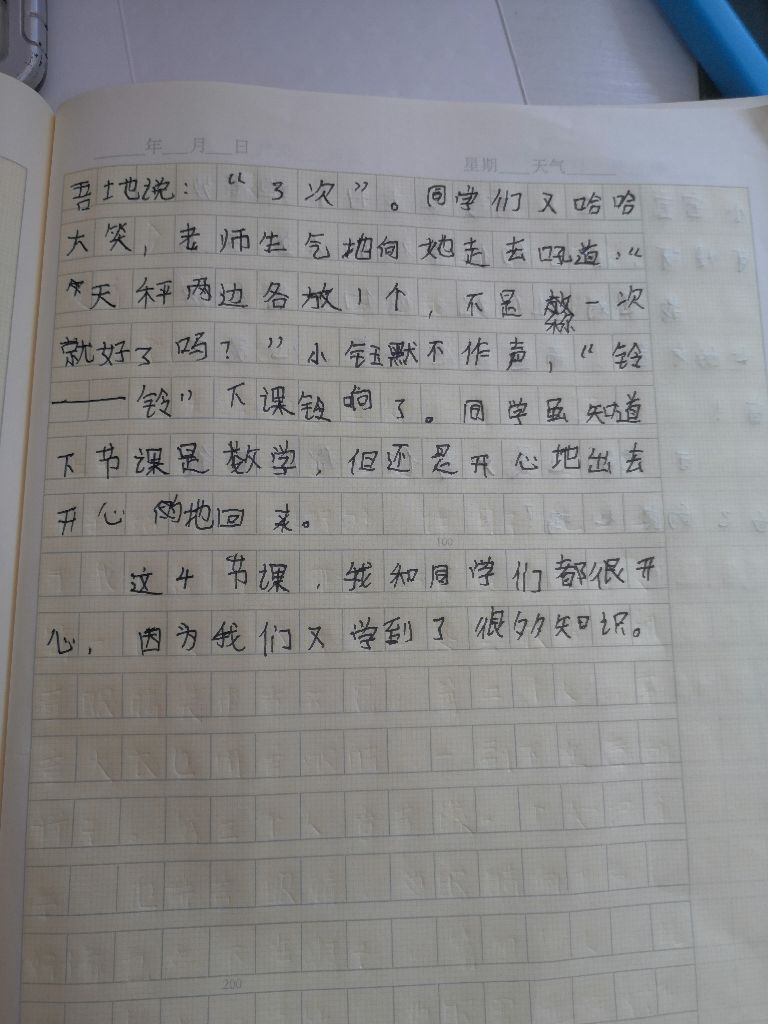 年 月 日
星期 天气
吾地说：“3次”。同学们又哈哈
大笑，老师生气地向她走去吼道：“
天秤两边各放1个，不是称一次
就好了吗？”小钰默不作声，“铃
——铃”下课铃响了。同学虽知道
下节课是数学，但还是开心地出去
开心的地回来。
100
这4节课，我和同学们都很开
心，因为我们又学到了很多知识。
200